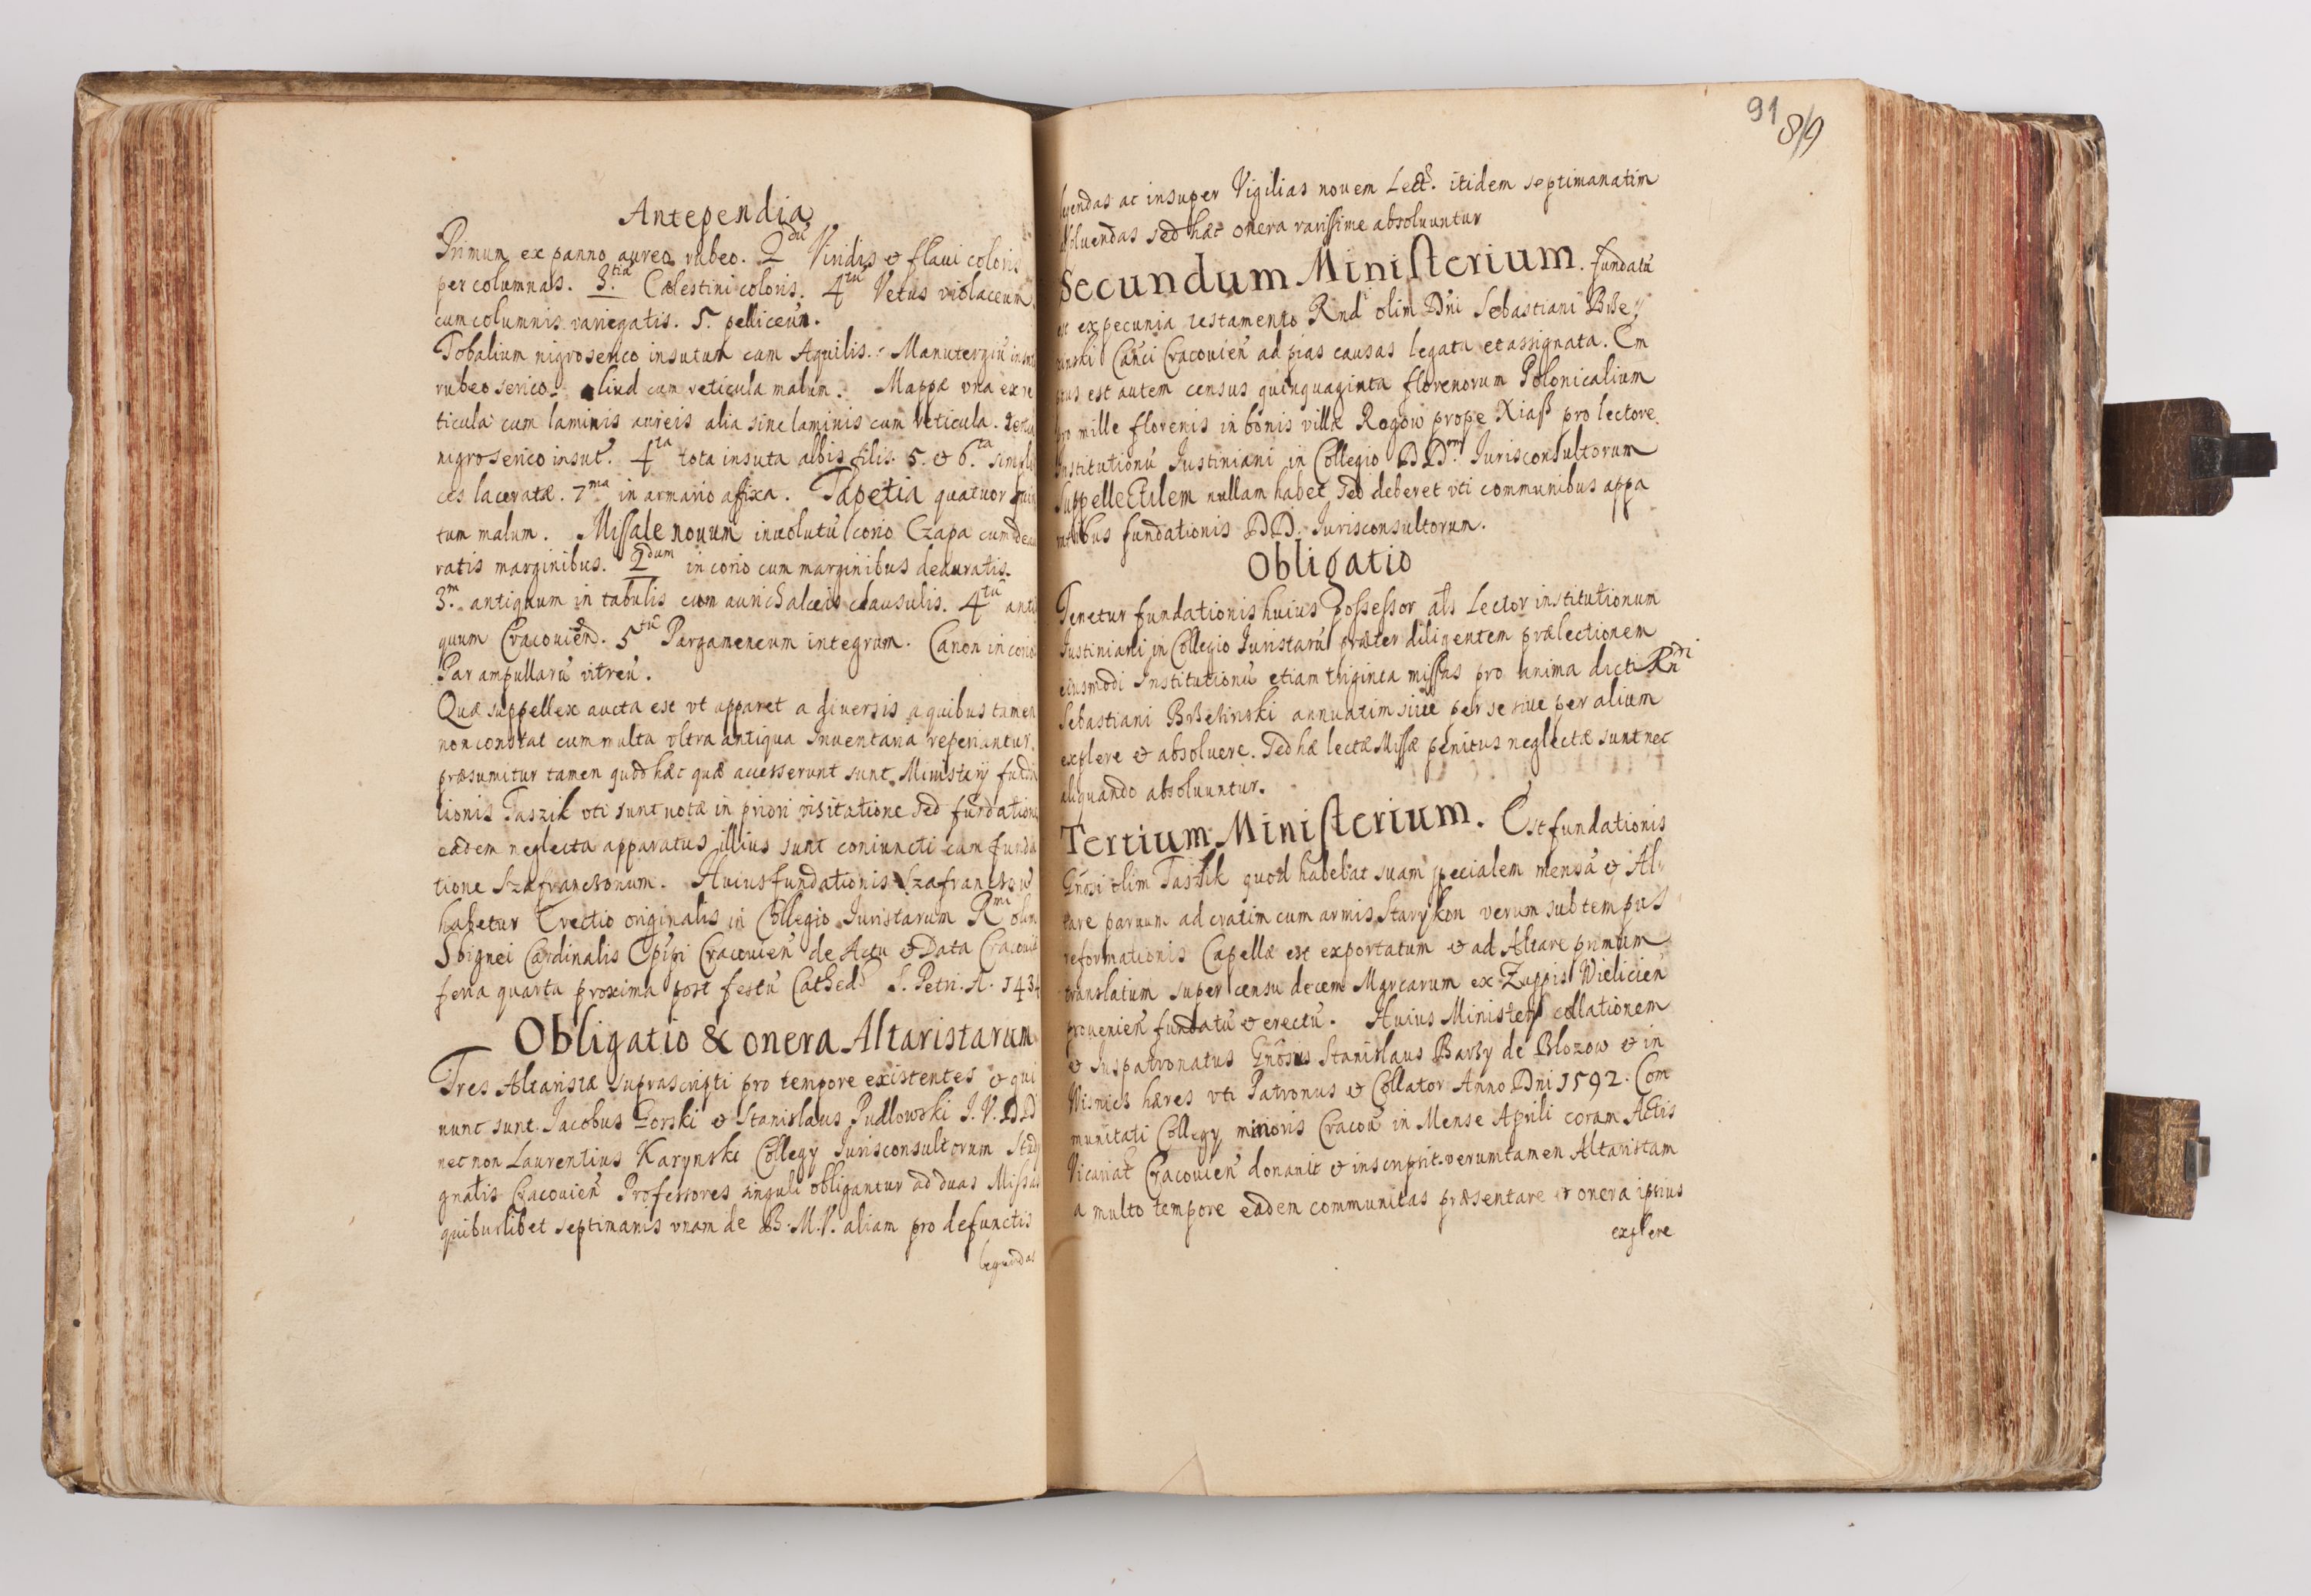 Antependia
Primum ex panno aureo rubeo. 2dũ Viridis & flaui coloris
per columnas. 3.tiũ Cælestini coloris. 4tũ Vetus violaceum
cum columnis variegatis. 5. pelliceũ.
Tobalium nigro serico insutum cum Aquilis. Manutergiũ
rubeo serico. aliud cum reticula malum. Mappæ vna ex re
ticula cum laminis aureis alia sine laminis cum reticula.
nigro serico insut. 4ta tota insuta albis filis. 5. & 6.ta simpli
ces laceratæ. 7ma in armario affixa. Tapetia quatuor quin
tum malum. Missale nouum inuolutũ corio Czapa cum deau
ratis marginibus. 2dum in corio cum marginibus deauratis.
3.m antiquum in tabulis cum aurichalceis clausulis. 4tũ anti
quum Cracouien. 5tũ Pergameneum integrum. Canon in corio
Par ampullarũ vitreũ.
Quæ suppellex aucta est vt apparet a diuersis a quibus tamen
non constat cum multa vltra antiqua Inuentaria reperiantur.
præsumitur tamen quod hæc quæ accesserunt sunt Ministerij funda
tionis Taszik vti sunt notæ in priori visitatione sed fundatione
eadem neglecta apparatus illius sunt coniuncti cum funda
tione Szafrancionum. Huius fundationis
habetur Erectio originalis in Collegio Iuristarum Rmi olim
Sbignei Cardinalis Eppi Cracouieñ de Actu & Data Cracouiæ
feria quarta proxima post festũ Cathed. S. Petri. A. 143
Obligatio & onera Altaristarum
Tres Altaristæ suprascripti pro tempore existentes & qui
nunc sunt Iacobus Gorski & Stanislaus Pudlowski I. V. DD
nec non Laurentius Karynski Collegij Iurisconsultorum
gnatis Cracouieñ Professores singuli obligantur ad duas Missas
quibuslibet septimanis vnam de B. M. V. aliam pro defunctis
legendas
91
89
legendas ac insuper Vigilias nouem Lect. itidem septimanatim
absoluendas sed hæc onera rarissime absoluuntur
Secundum Ministerium. fundatũ
est ex pecunia testamento Rnd olim Dñi Sebastiani Brze
zinski Cañci Cracouieñ ad pias causas legata et assignata. Em
ptus est autem census quinquaginta florenorum Polonicalium
pro mille florenis in bonis villæ Rogow prope Xiąß pro lectore
Institutionũ Iustiniani in Collegio DD. Iurisconsultorum
Suppellectilem nullam habet sed deberet vti communibus appa
ratibus fundationis DD. Iurisconsultorum.
Obligatio
Tenetur fundationis huius possessor als Lector institutionum
Iustiniani in Collegio Iuristarũ præter diligentem prælectionem
eiusmodi Institutionũ etiam triginta missas pro anima dicti Rndi
Sebastiani annuatim siue per se siue per alium
explere & absoluere. Sed hæ lectæ Missæ penitus neglectæ sunt nec
aliquando absoluuntur.
Tertium Ministerium. Est fundationis
Gñosi olim Taszik quod habebat suam specialem mensã & Al
tare paruum ad cratim cum armis Starykon verum sub tempus
reformationis Capellæ est exportatum & ad Altare primum
translatum super censu decem Marcarum ex Zuppis Wielicieñ
prouenieñ fundatũ & erectũ. Huius Ministerij collationem
& Iuspatronatus Gñosus Stanislaus Barzy de Blozow & in
Wisnicz hæres vti Patronus & Collator Anno Dni 1592. Com
munitati Collegij minoris Cracou in Mense Aprili coram Actis
Vicariat Cracouieñ donauit & inscripsit. verumtamen Altaristam
a multo tempore eadem communitas præsentare & onera ipsius
explere